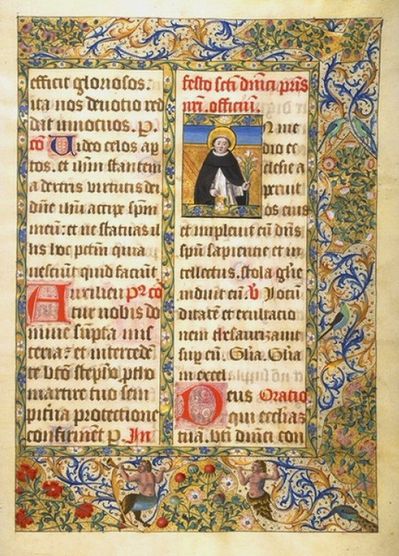 efficit gloriosos:
ita nos deuotio red
dat innocuos. P.
cō Uideo celos ap
tos. et ihm̄ stantem
a dextris virtutis dei
dn̄e ihu accipe spm̄
meū: et ne statuas il
lis hoc pctm̄ quia
nesciunt quid faciūt
Auxilien
tur nobis do
mine sumpta mis
teria: et intercede
te bt̄o stephō ptho
martire tuo sem
piterna protectione
confirment P. In
festo scti dn̄ici pr̄is
nr̄i. officiū.
N me
dio ec
clesie a
peruit
os eius
et impleuit eū dn̄s
spū sapientie et in
tellectus. stola gl̄ie
induit eū. Jocun
ditatē et exultatio
nem thesaurizauit
sup eū. Gl̄ia. Gl̄ia
in excel.
Deus Oratio
qui eccl̄iaz
tuā. bt̄i dn̄ici con